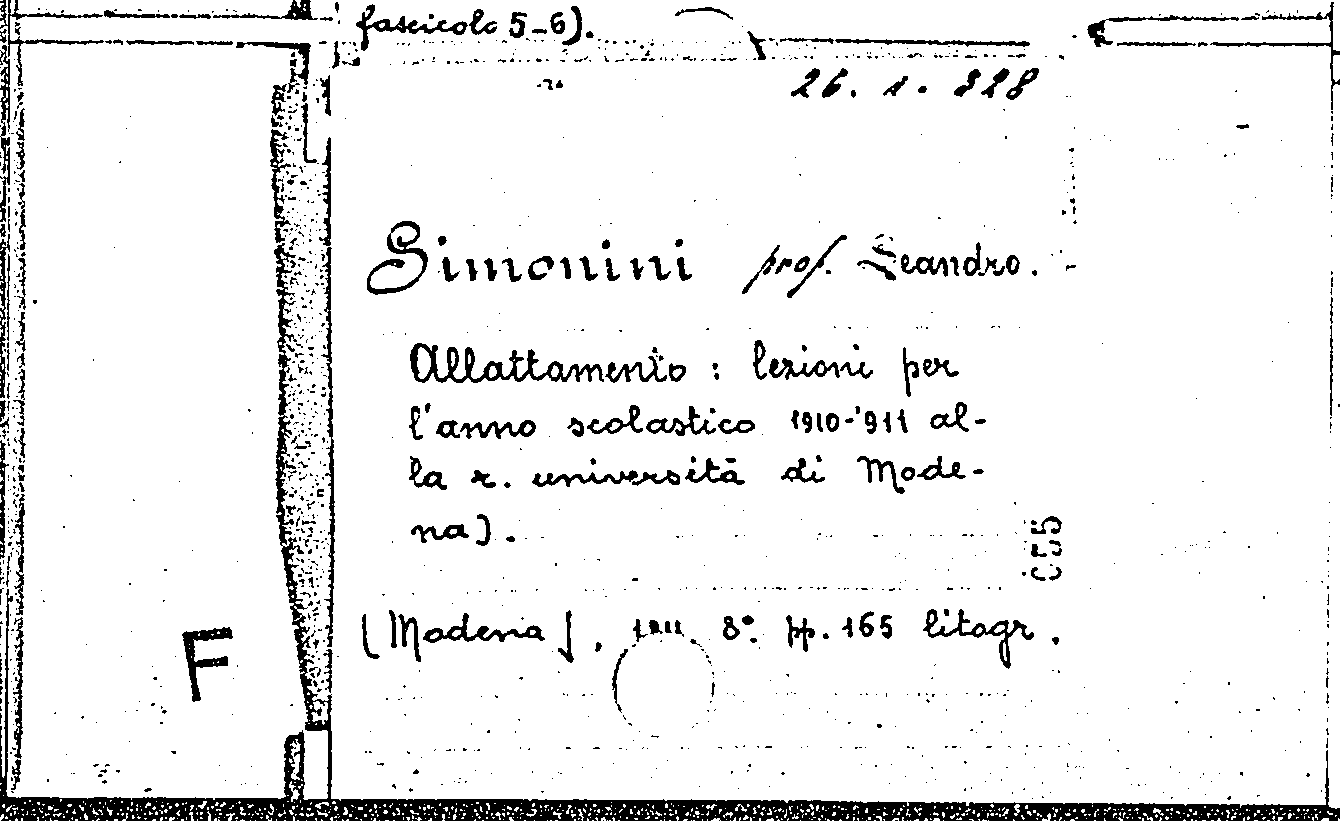 fascicolo 5-6).
26. 1. 328
Simonini prof. Leandro.
Allattamento : lezioni per
l'anno scolastico 1910-'911 al-
la r. università di Mode-
na).
[Modena], 1911. 8°. pp. 165 litogr.
F